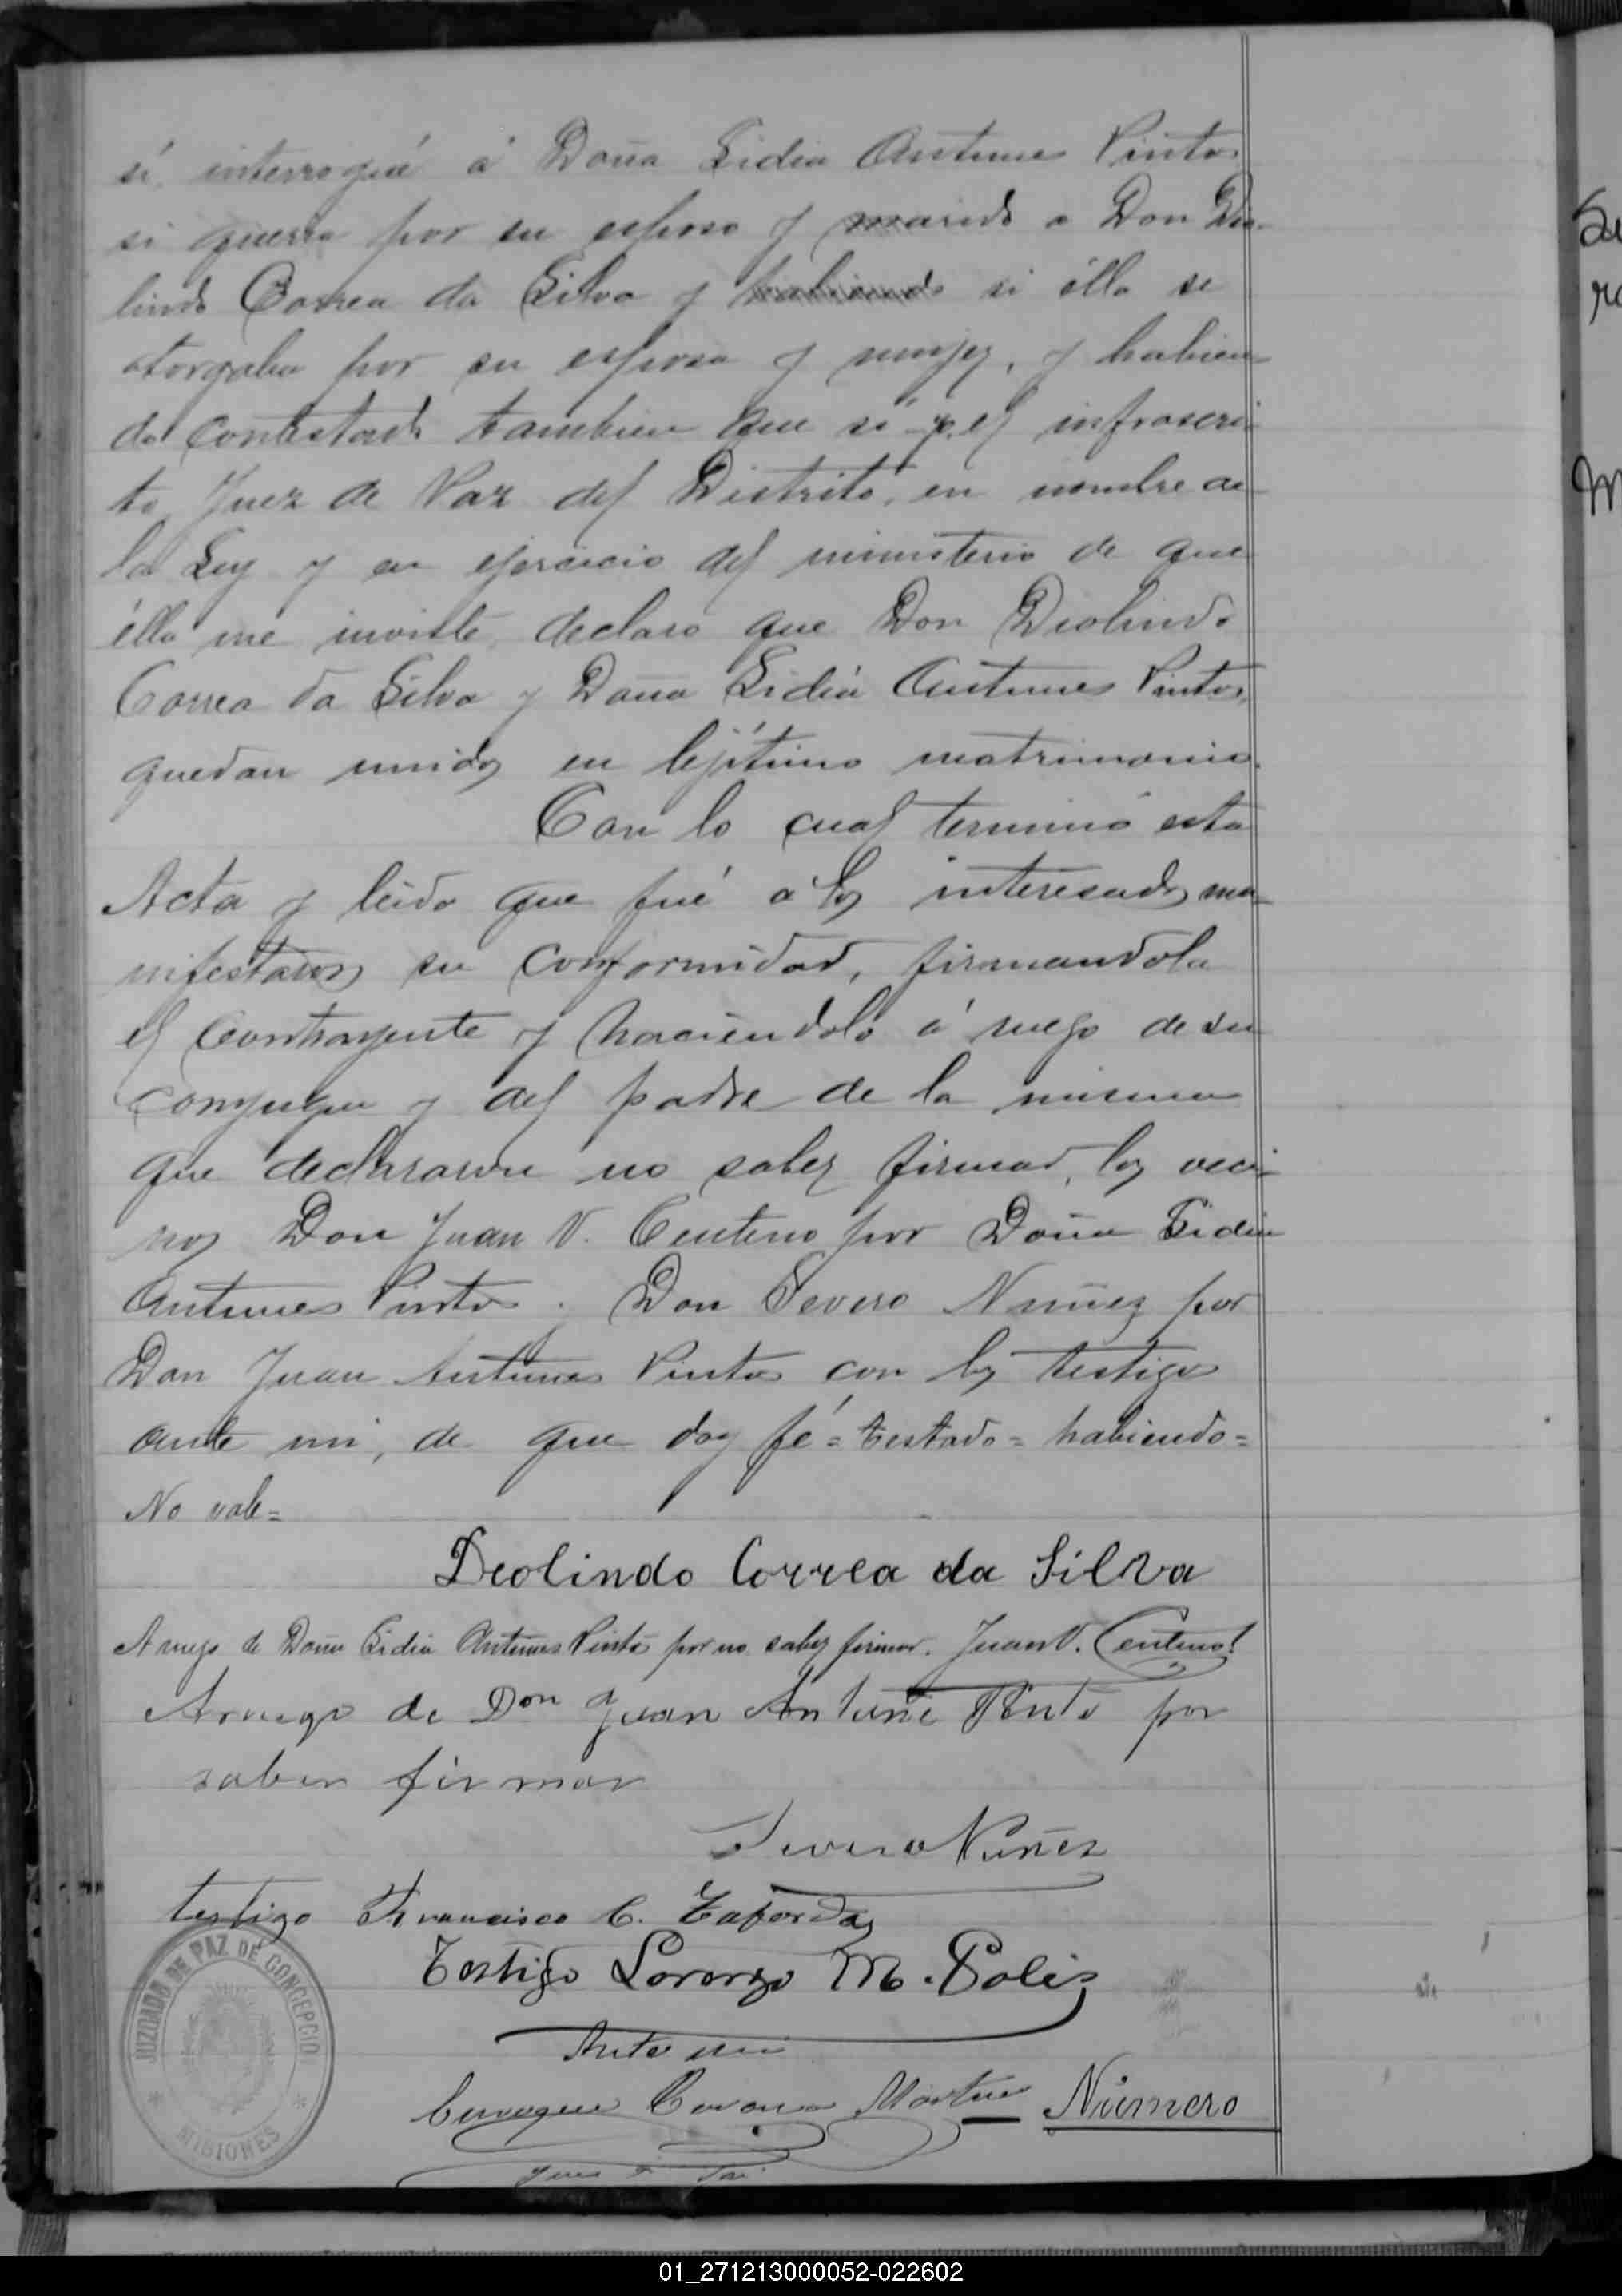 sí, interrogué á Doña Lidia Antunes Pinto
si queria por su esposo y marido a Don Dio-
lindo Correa da Silva y habiendo si élla se
otorgaba por su esposa y mujer, y habien-
do contestado tambien que sí yo, el infrascri-
to Juez de Paz del Distrito, en nombre de
la Ley y en ejercicio del ministerio de que
élla me inviste, declaro que Don Diolindo
Correa da Silva y Doña Lidia Antunes Pinto,
quedan unidos en lejítimo matrimonio.
Con lo cual terminó esta
Acta y leida que fué a los interesados ma-
nifestaron su conformidad, firmandola
el contrayente y haciéndolo á ruego de su
conyugue y del padre de la misma
que declararon no saber firmar, los veci-
nos Don Juan V. Centeno por Doña Lidia
Antunes Pinto y Don Severo Nuñez por
Don Juan Antunes Pinto con los testigos
ante mi, de que doy fé = testado = habiendo =
No vale =
Deolindo Correa da Silva
A ruego de Doña Lidia Antunes Pinto por no saber firmar. Juan V. Centeno
Aruego de Don Juan Antune Pinto por
saber firmar
Severo Nuñez
testigo Francisco C. Taborda
Testigo Lorenzo M. Solis
Ante mi
Número
JUZGADO DE PAZ DE CONCEPCION
MISIONES
01_271213000052-022602